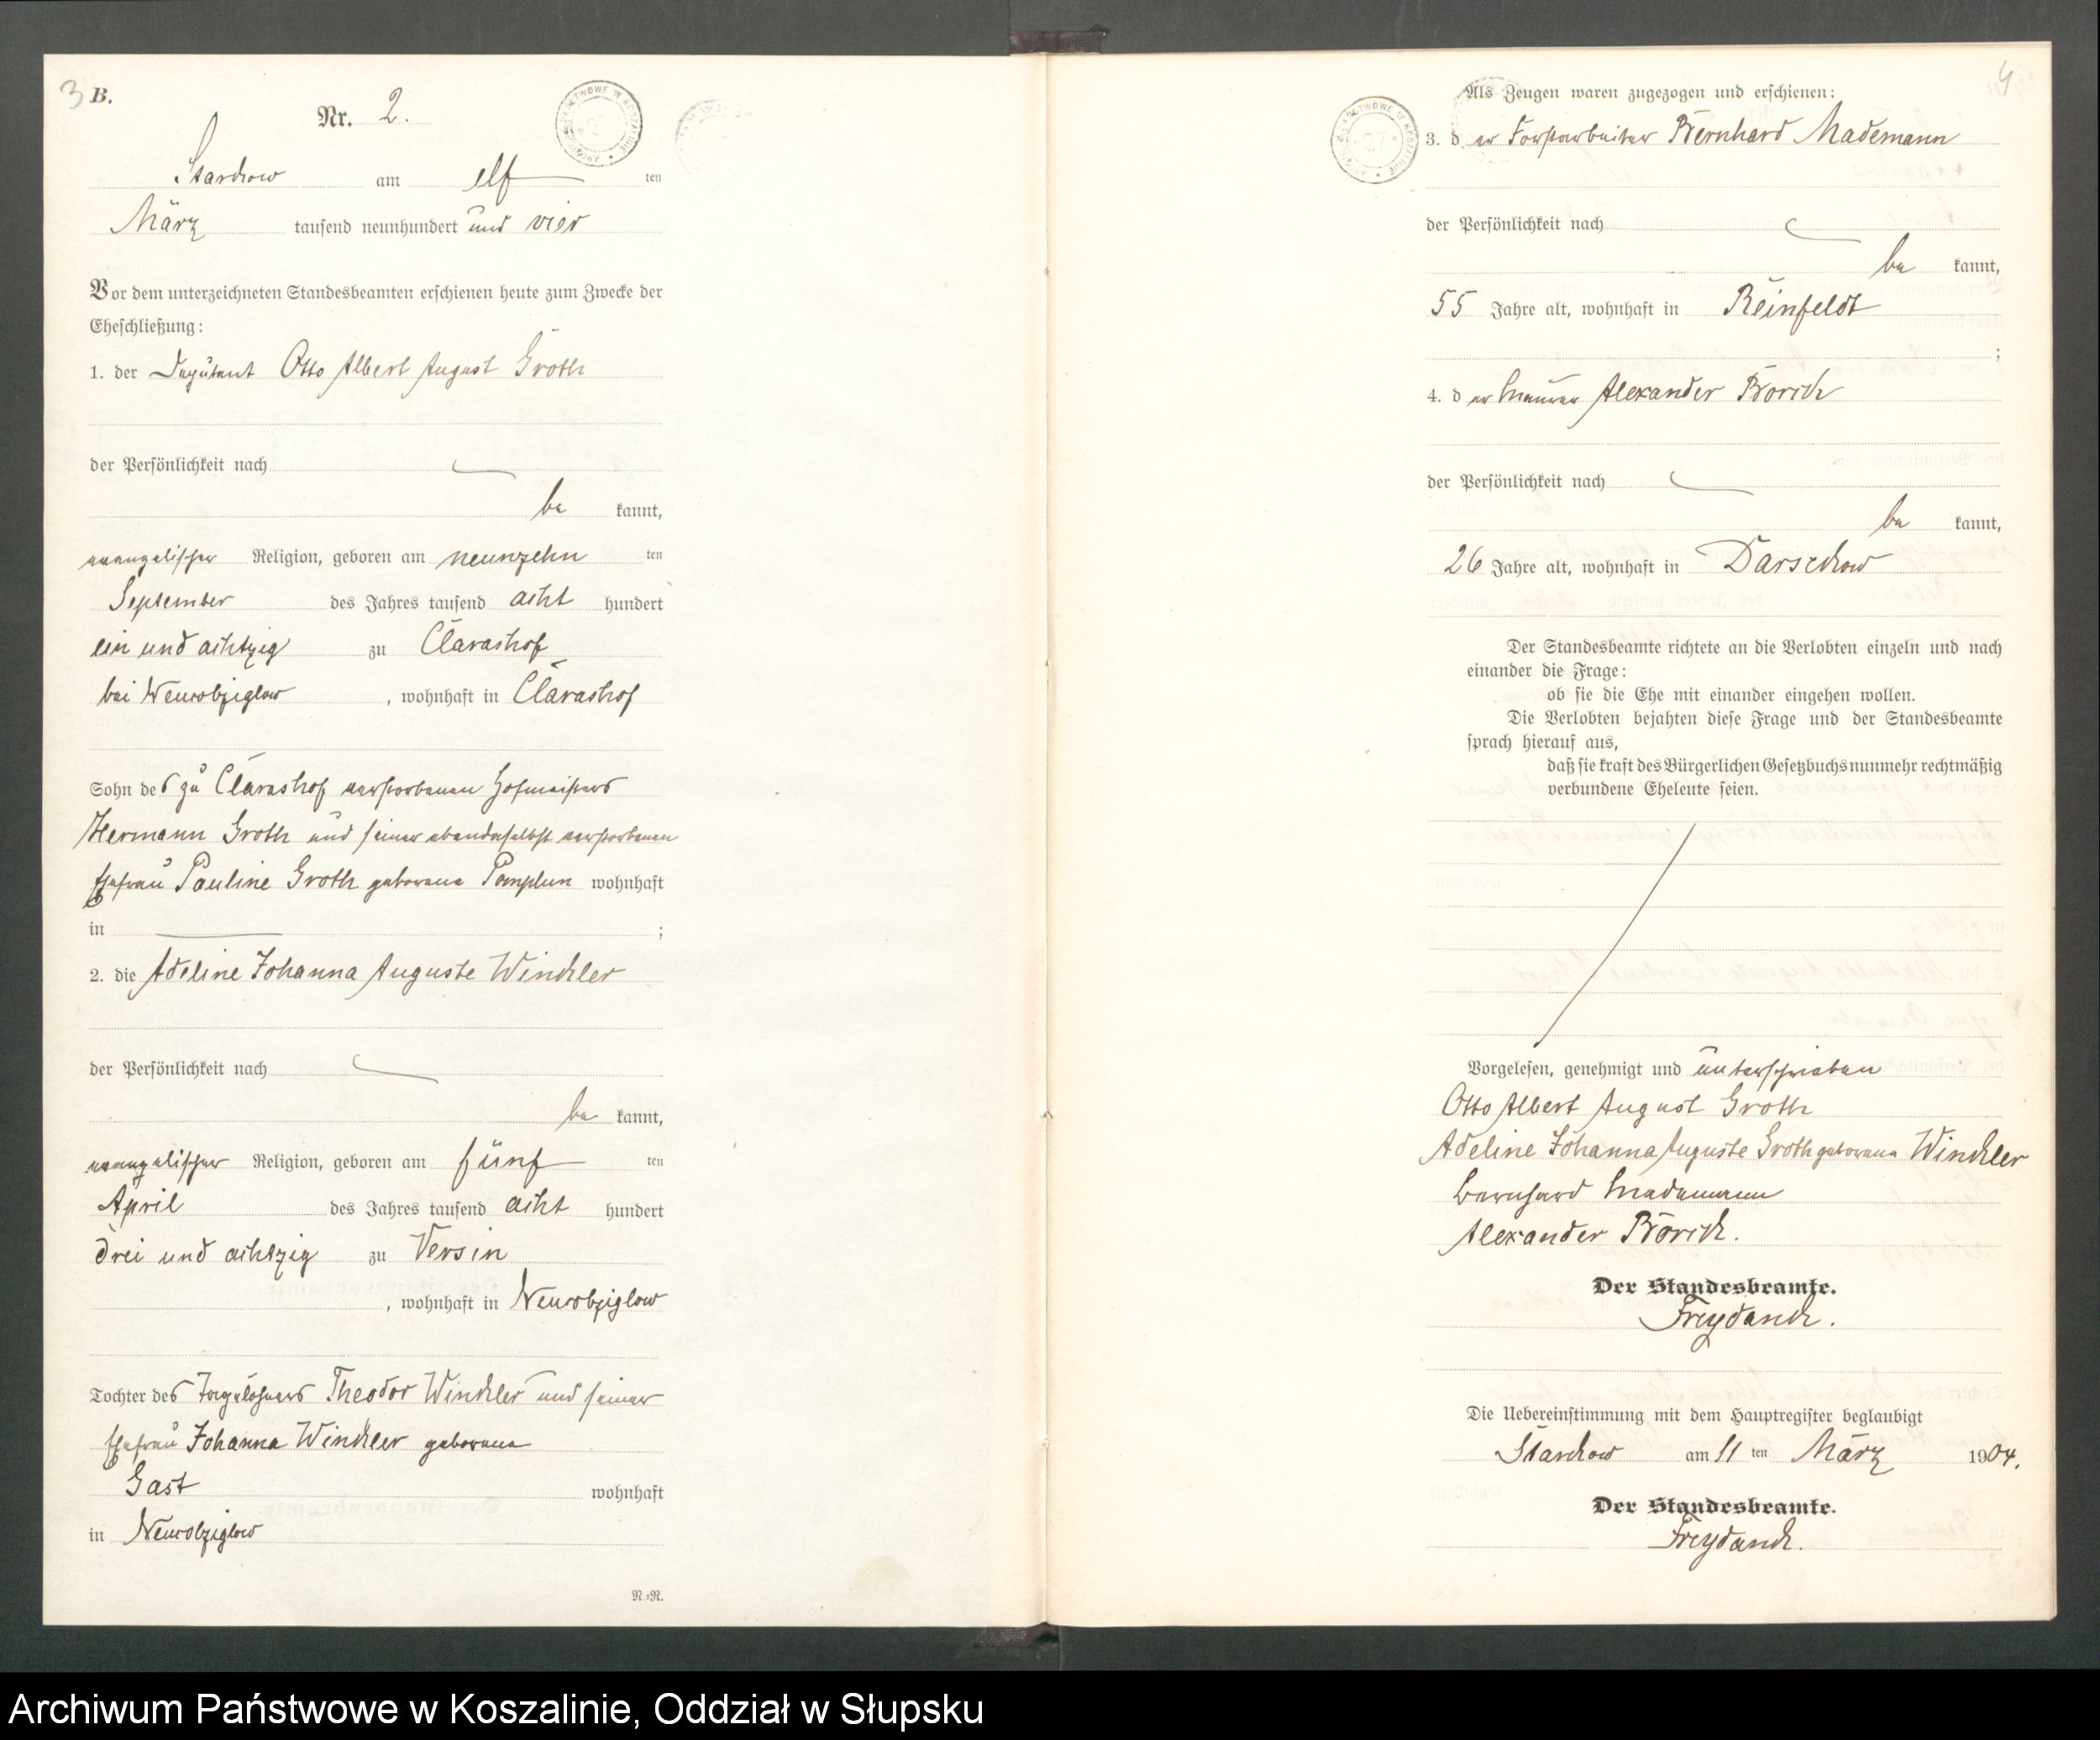 3 B.
Nr. 2.
Starckow am elf ten
März tausend neunhundert und vier
Vor dem unterzeichneten Standesbeamten erschienen heute zum Zwecke der
Eheschließung:
1. der Deputant Otto Albert August Groth
der Persönlichkeit nach
be kannt,
evangelischer Religion, geboren am neunzehn ten
September des Jahres tausend acht hundert
ein und achtzig zu Clarashof
bei Wendobziglow, wohnhaft in Clarashof
Sohn des zu Clarashof verstorbenen Hofmeisters
Hermann Groth und seiner ebendaselbst verstorbenen
Ehefrau Pauline Groth geborene Pomplun wohnhaft
in ;
2. die Adeline Johanna Auguste Winckler
der Persönlichkeit nach
be kannt,
evangelischer Religion, geboren am fünf ten
April des Jahres tausend acht hundert
drei und achtzig zu Versin
, wohnhaft in
Tochter des Tagelöhners Theodor Winckler und seiner
Ehefrau Johanna Winckler geborene
Gast wohnhaft
in
N.-N.
4
Als Zeugen waren zugezogen und erschienen:
3. der Forstarbeiter Bernhard Mademann
der Persönlichkeit nach
be kannt,
55 Jahre alt, wohnhaft in Reinfeldt
;
4. der Maurer Alexander Borick
der Persönlichkeit nach
be kannt,
26 Jahre alt, wohnhaft in Darseckow
Der Standesbeamte richtete an die Verlobten einzeln und nach
einander die Frage:
ob sie die Ehe mit einander eingehen wollen.
Die Verlobten bejahten diese Frage und der Standesbeamte
sprach hierauf aus,
daß sie kraft des Bürgerlichen Gesetzbuchs nunmehr rechtmäßig
verbundene Eheleute seien.
Vorgelesen, genehmigt und unterschrieben
Otto Albert August Groth
Adeline Johanna Auguste Groth geborene Winckler
Bernhard Mademann
Alexander Borick.
Der Standesbeamte.
Freydanck.
Die Uebereinstimmung mit dem Hauptregister beglaubigt
Starckow am 11 ten März 1904.
Der Standesbeamte.
Freydanck.
Archiwum Państwowe w Koszalinie, Oddział w Słupsku